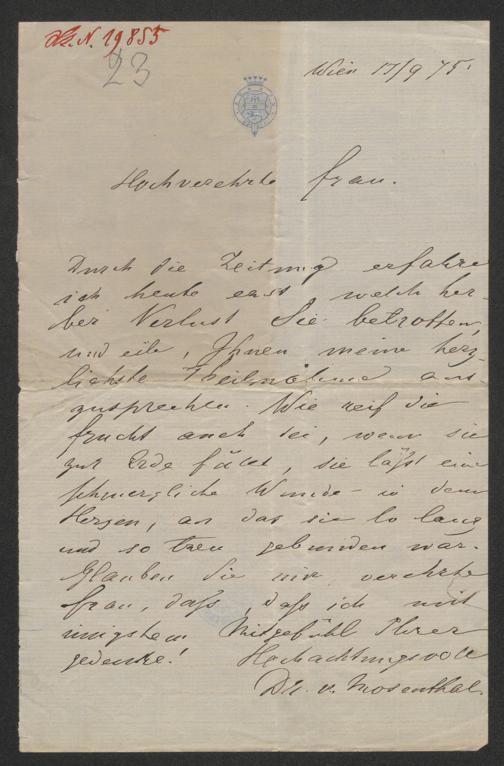 I.N. 19855
23
Wien 17/9 75.
Hochverehrte Frau.
Durch die Zeitung erfahre
ich heute erst welch her-
ber Verlust Sie betroffen,
und eile, Ihnen meine herz-
lichste Theilnahme aus-
zusprechen. Wie reif die
Frucht auch sei, wenn sie
zur Erde fällt, sie läßt eine
schmerzliche Wunde in dem
Herzen, an das sie so lang
und so treu gebunden war.
Glauben Sie mir verehrte
Frau, daß, daß ich mit
innigstem Mitgefühl Ihrer
gedenke! Hochachtungsvoll
Dr. v. Mosenthal.